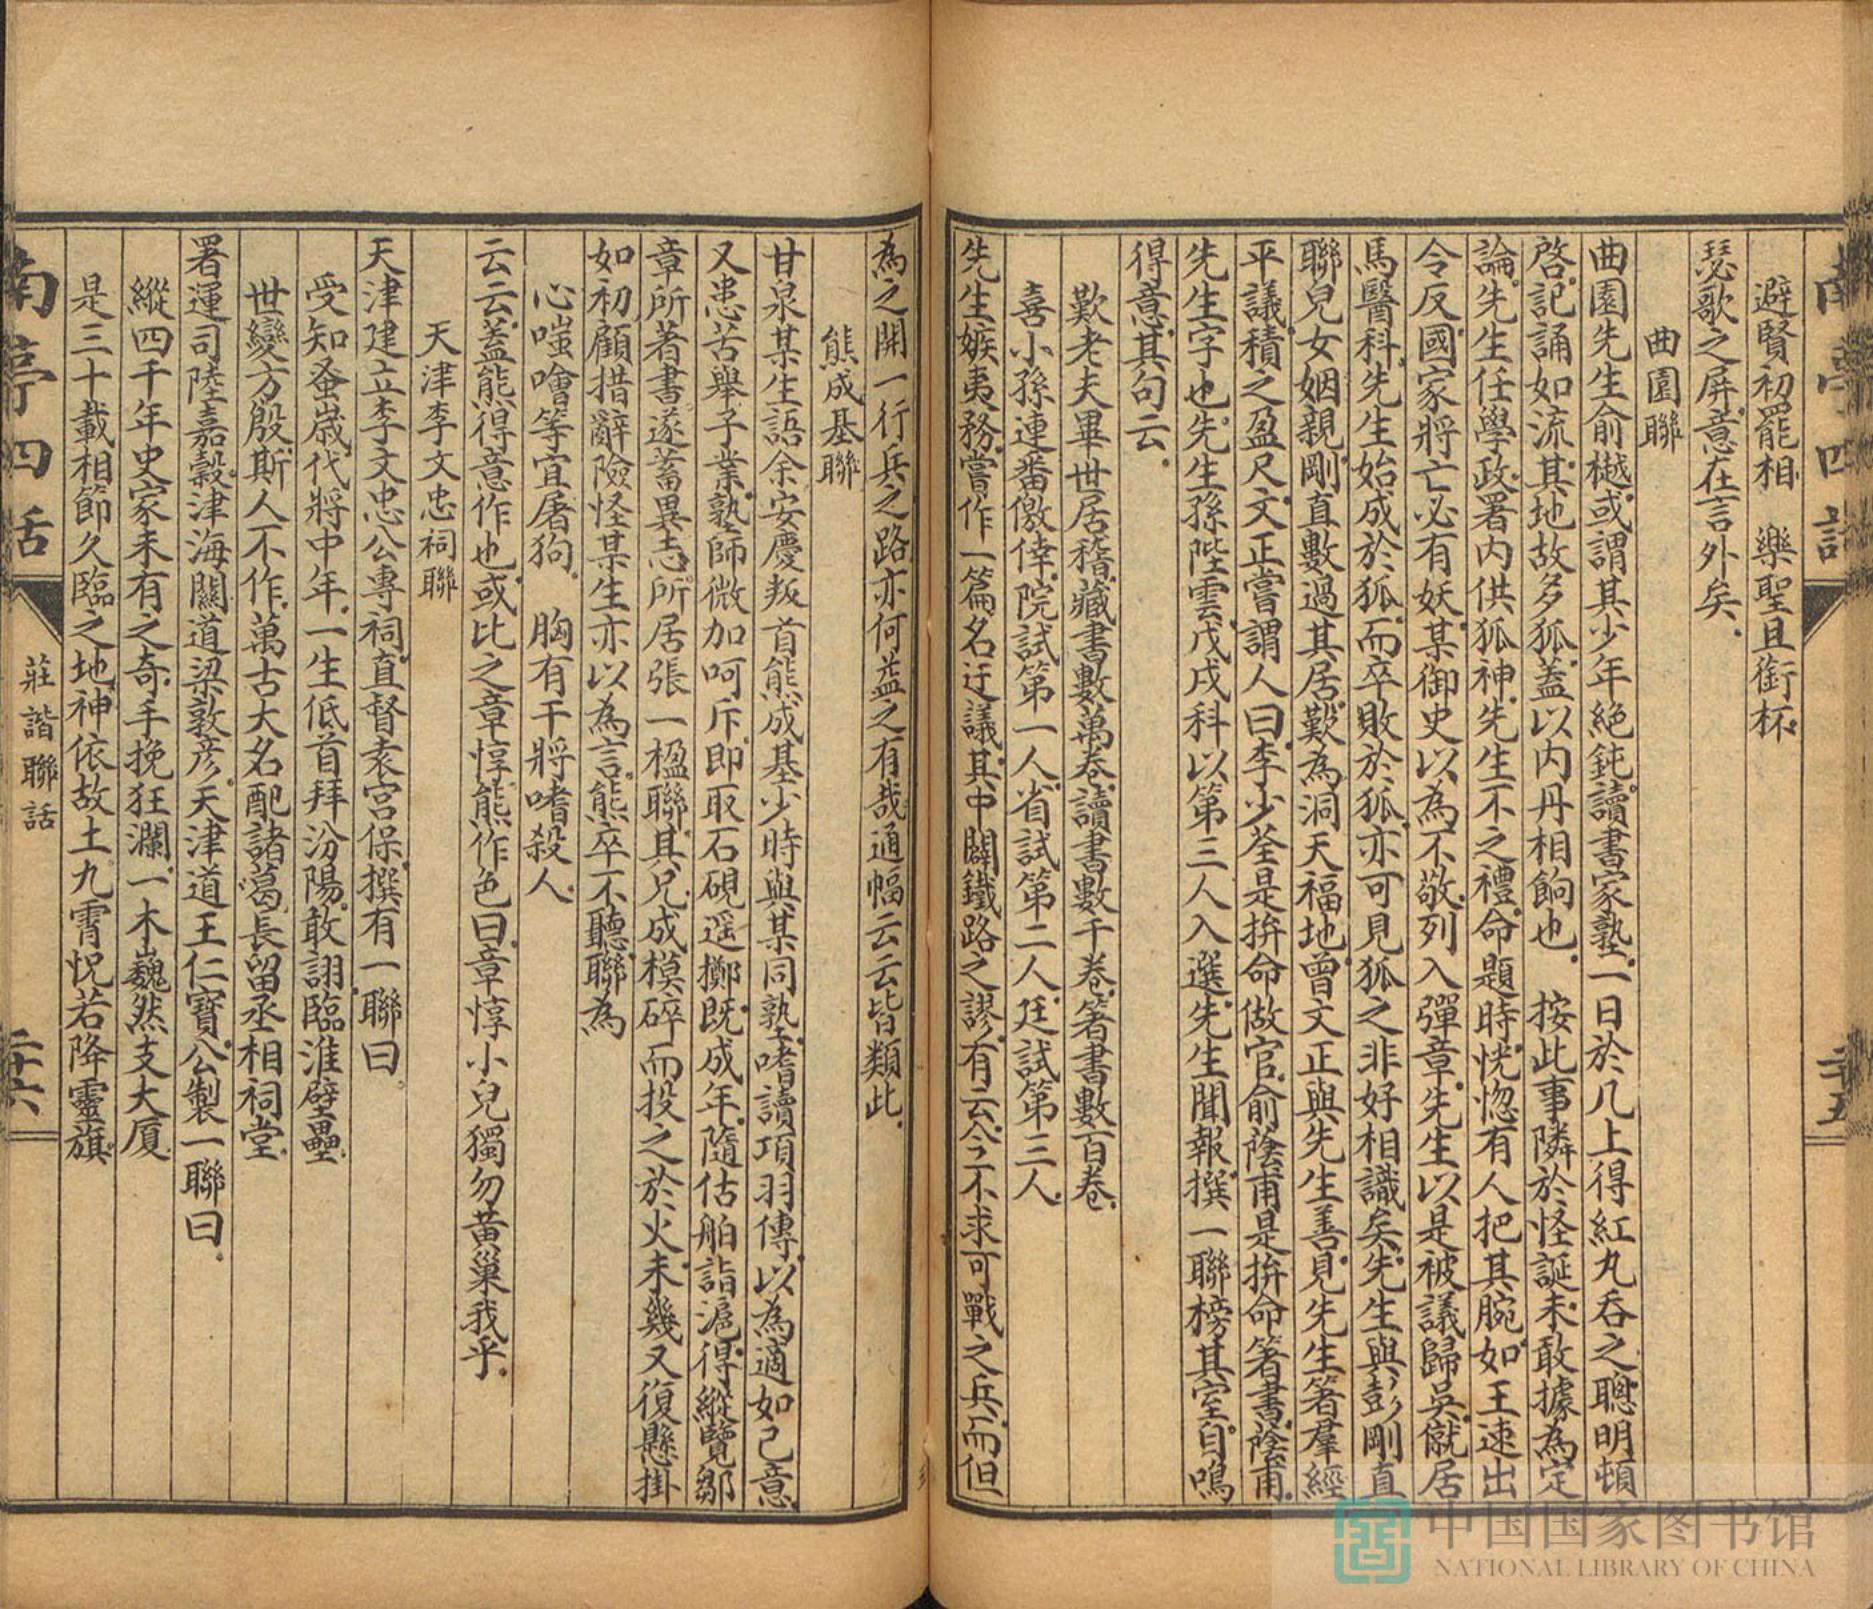 南亭四話
二十五
避賢初罷相　樂聖且銜杯
瑟歌之屏意在言外矣
曲園聯
曲園先生俞樾或謂其少年絕鈍讀書家塾一日於几上得紅丸吞之聰明頓
啓記誦如流其地故多狐蓋以内丹相餉也　按此事隣於怪誕未敢據為定
論先生任學政署内供狐神先生不之禮命題時恍惚有人把其腕如王速出
令反國家將亡必有妖某御史以為不敬列入彈章先生以是被議歸吳僦居
馬醫科先生始成於狐而卒敗於狐亦可見狐之非好相識矣先生與彭剛直
聯兒女姻親剛直數過其居歎為洞天福地曾文正與先生善見先生箸羣經
平議積之盈尺文正嘗謂人曰李少荃是拚命做官俞蔭甫是拚命箸書蔭甫
先生字也先生孫陛雲戊戌科以第三人入選先生聞報撰一聯榜其室自鳴
得意其句云
歎老夫畢世居稽藏書數萬卷讀書數千卷箸書數百卷
喜小孫連番儌倖院試第一人省試第二人廷試第三人
先生嫉夷務嘗作一篇名迂議其中闢鐵路之謬有云今不求可戰之兵而但
為之開一行兵之路亦何益之有哉通幅云云皆類此
熊成基聯
甘泉某生語余安慶叛首熊成基少時與某同塾嗜讀項羽傳以為適如己意
又患苦舉子業塾師微加呵斥即取石硯遥擲既成年隨估舶詣滬得縱覽鄒
章所著書遂蓄異志所居張一楹聯其兄成模碎而投之於火未幾又復懸掛
如初顧措辭險怪某生亦以為言熊卒不聽聯為
心嗤噲等宜屠狗　胸有干將嗜殺人
云云蓋熊得意作也或比之章惇熊作色曰章惇小兒獨勿黃巢我乎
天津李文忠祠聯
天津建立李文忠公專祠直督袁宮保撰有一聯曰
受知蚤歲代將中年一生低首拜汾陽敢詡臨淮壁壘
世變方殷斯人不作萬古大名配諸葛長留丞相祠堂
署運司陸嘉穀津海關道梁敦彦天津道王仁寶公製一聯曰
縱四千年史家未有之奇手挽狂瀾一木巍然支大厦
是三十載相節久臨之地神依故土九霄怳若降靈旗
南亭四話
莊諧聯話
二十六
中国国家图书馆
NATIONAL LIBRARY OF CHINA